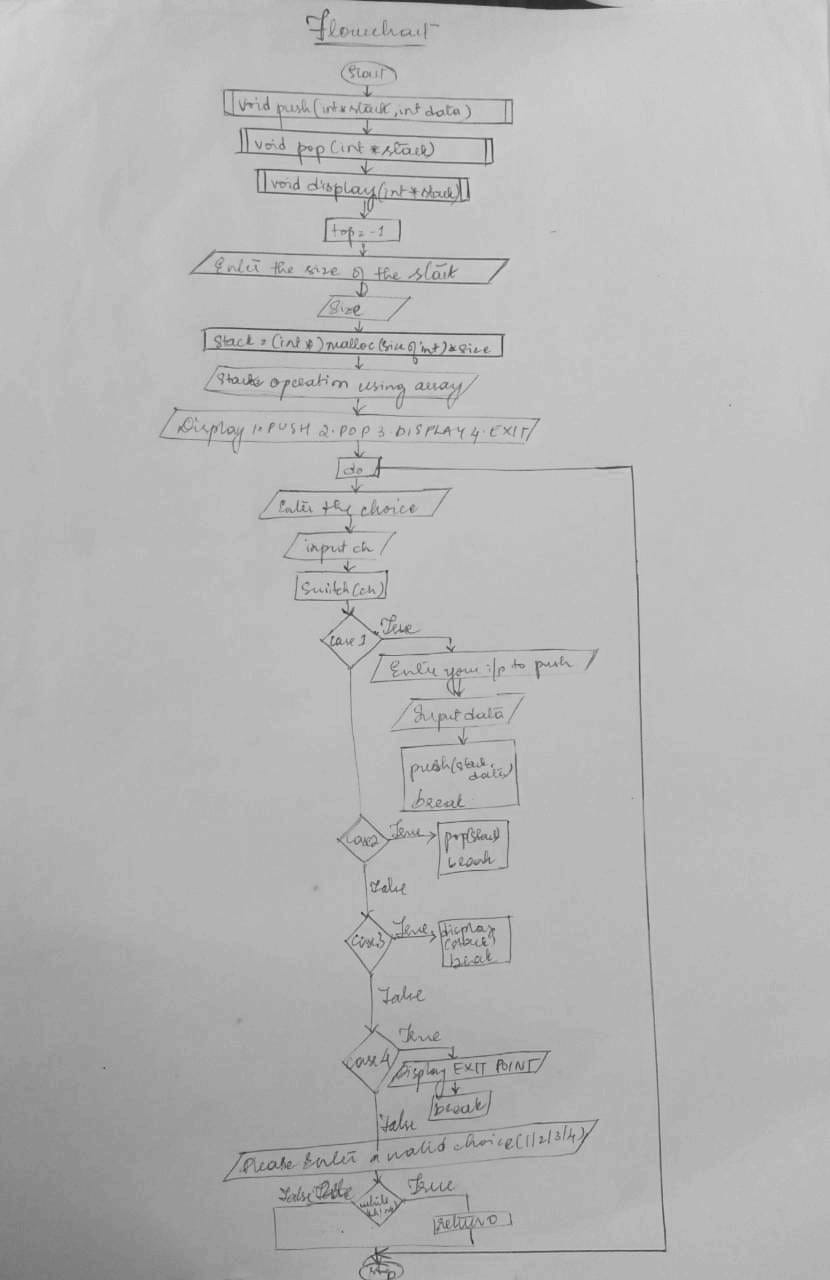 Flowchart
Start
void push(int*stack, int data)
void pop(int *stack)
void display(int *stack)
top = -1
Enter the size of the stack
Size
Stack = (int *) malloc(size of int) * size
Stack operation using array
Display 1.PUSH 2.POP 3.DISPLAY 4.EXIT
do
Enter the choice
input ch
Switch(ch)
Case 1
True
Enter your i/p to push
Input data
push(stack,
data)
break
Case 2
True
pop(stack)
break
False
Case 3
True
display
(stack)
break
False
Case 4
True
Display EXIT POINT
break
False
Please Enter a valid choice(1/2/3/4)
False
while
True
return 0
Stop